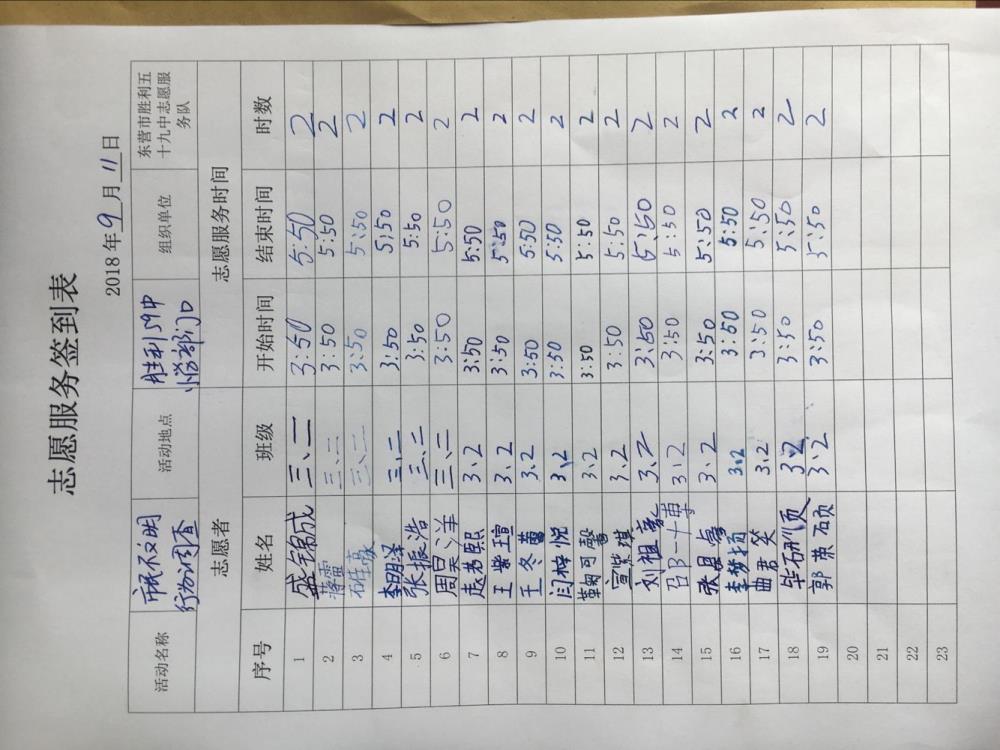 志愿服务签到表
2018年9月11日
活动名称 市民不文明行为调查 活动地点 胜利59中小学部门口 组织单位 东营市胜利五十九中志愿服务队
志愿者 志愿服务时间
序号 姓名 班级 开始时间 结束时间 时数
1 盛锦成 三、二 3:50 5:50 2
2 蒋雷 三、二 3:50 5:50 2
3 三、二 3:50 5:50 2
4 李明泽 三、二 3:50 5:50 2
5 张振浩 三、二 3:50 5:50 2
6 周昊洋 三、二 3:50 5:50 2
7 赵书熙 3、2 3:50 5:50 2
8 王紫瑄 3、2 3:50 5:50 2
9 王冬蕾 3、2 3:50 5:50 2
10 闫梓悦 3、2 3:50 5:50 2
11 鞠可馨 3、2 3:50 5:50 2
12 宣紫祺 3、2 3:50 5:50 2
13 刘祖豪 3、2 3:50 5:50 2
14 邵一博 3、2 3:50 5:50 2
15 3、2 3:50 5:50 2
16 李梦扬 3、2 3:50 5:50 2
17 曲君笑 3、2 3:50 5:50 2
18 毕研页 3、2 3:50 5:50 2
19 郭荣硕 3、2 3:50 5:50 2
20
21
22
23